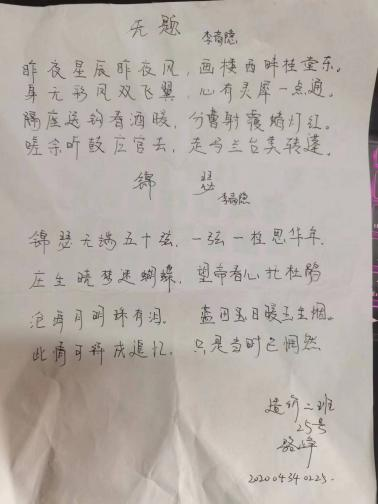 无题
李商隐
昨夜星辰昨夜风，画楼西畔桂堂东。
身无彩凤双飞翼，心有灵犀一点通。
隔座送钩春酒暖，分曹射覆蜡灯红。
嗟余听鼓应官去，走马兰台类转蓬。
锦瑟
李商隐
锦瑟无端五十弦，一弦一柱思华年。
庄生晓梦迷蝴蝶，望帝春心托杜鹃
沧海月明珠有泪。蓝田玉日暖玉生烟。
此情可待成追忆，只是当时已惘然
造价二班
25号
骆峥
202004340225.